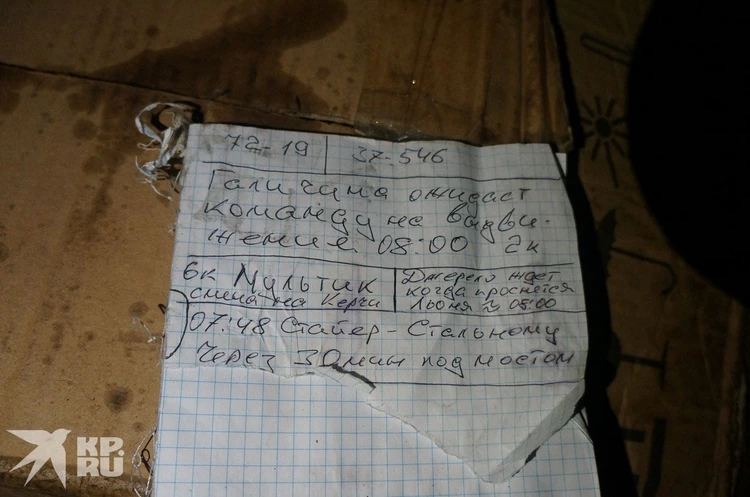 72-19 37-546
Галичина ожидает
команду на выдви-
жения 08:00 2к
6к Мультик
смена на Керчи
Джерело ждет
когда проснётся
Льоня ≈ 08:00
07:48 Стайер - Стальному
Через 30 мин под мостом
KP.RU